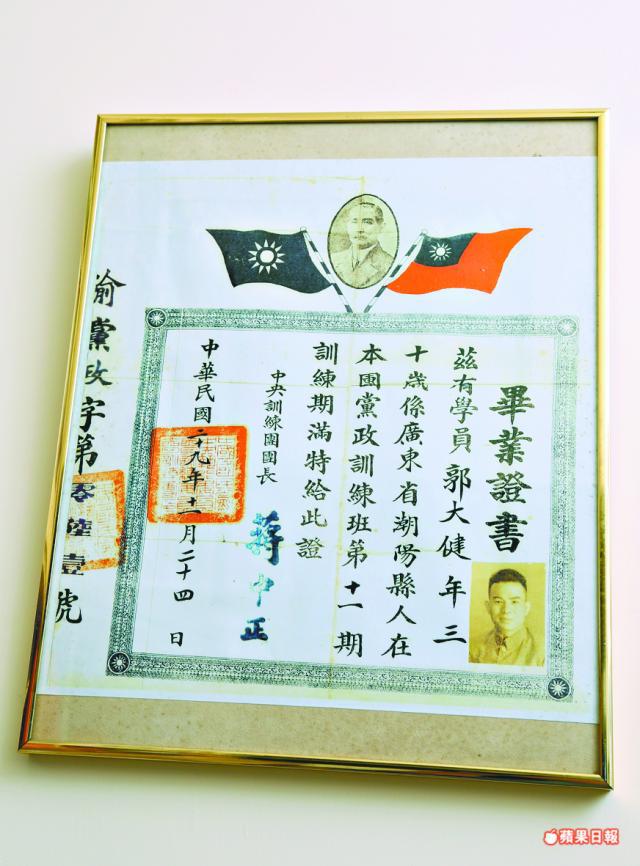 畢業證書
茲有學員郭大健年三
十歲係廣東省潮陽縣人在
本團黨政訓練班第十一期
訓練期滿特給此證
中央訓練團團長
蔣中正
中華民國二十九年十一月二十四日
渝黨政字第零陸壹號
蘋果日報